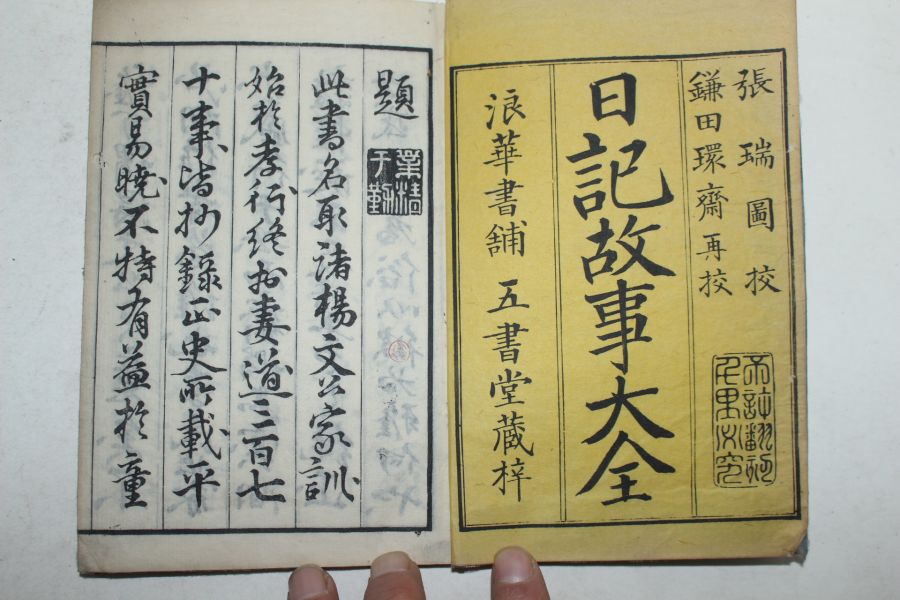 張瑞圖校
鎌田環齋再挍
日記故事大全
浪華書舗 五書堂藏梓
不許翻刻
千里必究
題
業精
于勤
此書名取諸楊文公家訓
始於孝行終於妻道三百七
十事皆抄錄正史所載平
實易曉不特有益於童